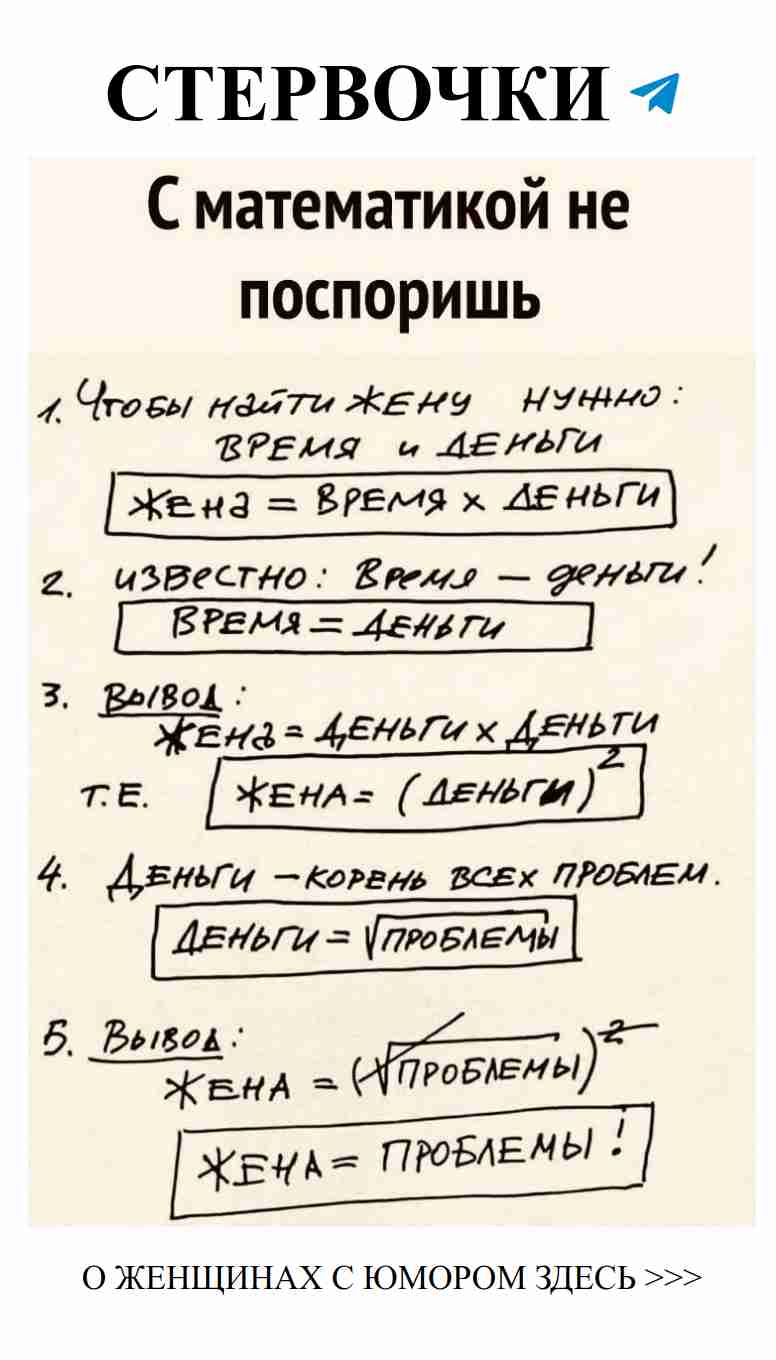 СТЕРВОЧКИ
С математикой не
поспоришь
1. Чтобы найти жену нужно:
время и деньги
жена = время х деньги
2. известно: Время – деньги!
время = деньги
3. Вывод:
жена = деньги х деньги
т.е. жена = (деньги)²
4. Деньги – корень всех проблем.
деньги = √проблемы
5. Вывод:
жена = (√проблемы)²
жена = проблемы!
О ЖЕНЩИНАХ С ЮМОРОМ ЗДЕСЬ >>>